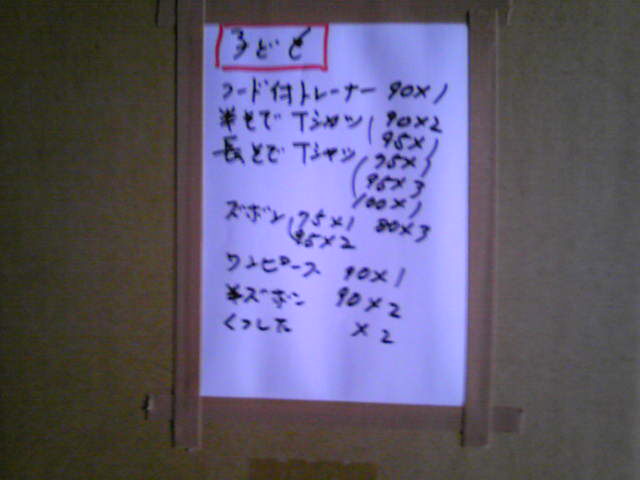 子ども
フード付トレーナー 90×1
半そでTシャツ 90×2
95×1
長そでTシャツ 75×1
95×3
100×1
ズボン 75×1 80×3
95×2
ワンピース 90×1
半ズボン 90×2
くつした ×2